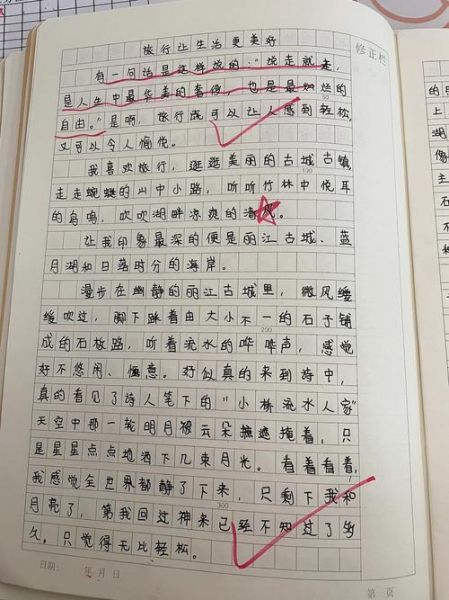 修正栏
旅行让生活更美好
有一句话是这样说的："说走就走，
是人生中最华美的奢侈，也是最灿烂的
自由。"是啊，旅行既可以让人感到轻松，
又可以令人愉悦。
我喜欢旅行，逛逛美丽的古城古镇，
走走蜿蜒的山中小路，听听竹林中悦耳
100
的鸟鸣，吹吹湖畔凉爽的海风。
让我印象最深的便是丽江古城、蓝
月湖和日落时分的海岸。
漫步在幽静的丽江古城里，微风缓
缓吹过，脚下踩着由大小不一的石子铺
200
成的石板路，听着流水的哗哗声，感觉
好不悠闲、惬意。好似真的来到诗中，
真的看见了诗人笔下的"小桥流水人家"
天空中那一轮明月被云朵遮掩着，只
是星星点点地洒下几束月光。看着看着，
我感觉全世界都静了下来，只剩下我和
300
月亮了，等我回过神来已经不知过了多
久，只觉得无比轻松。
日期： 年 月 日
第 页